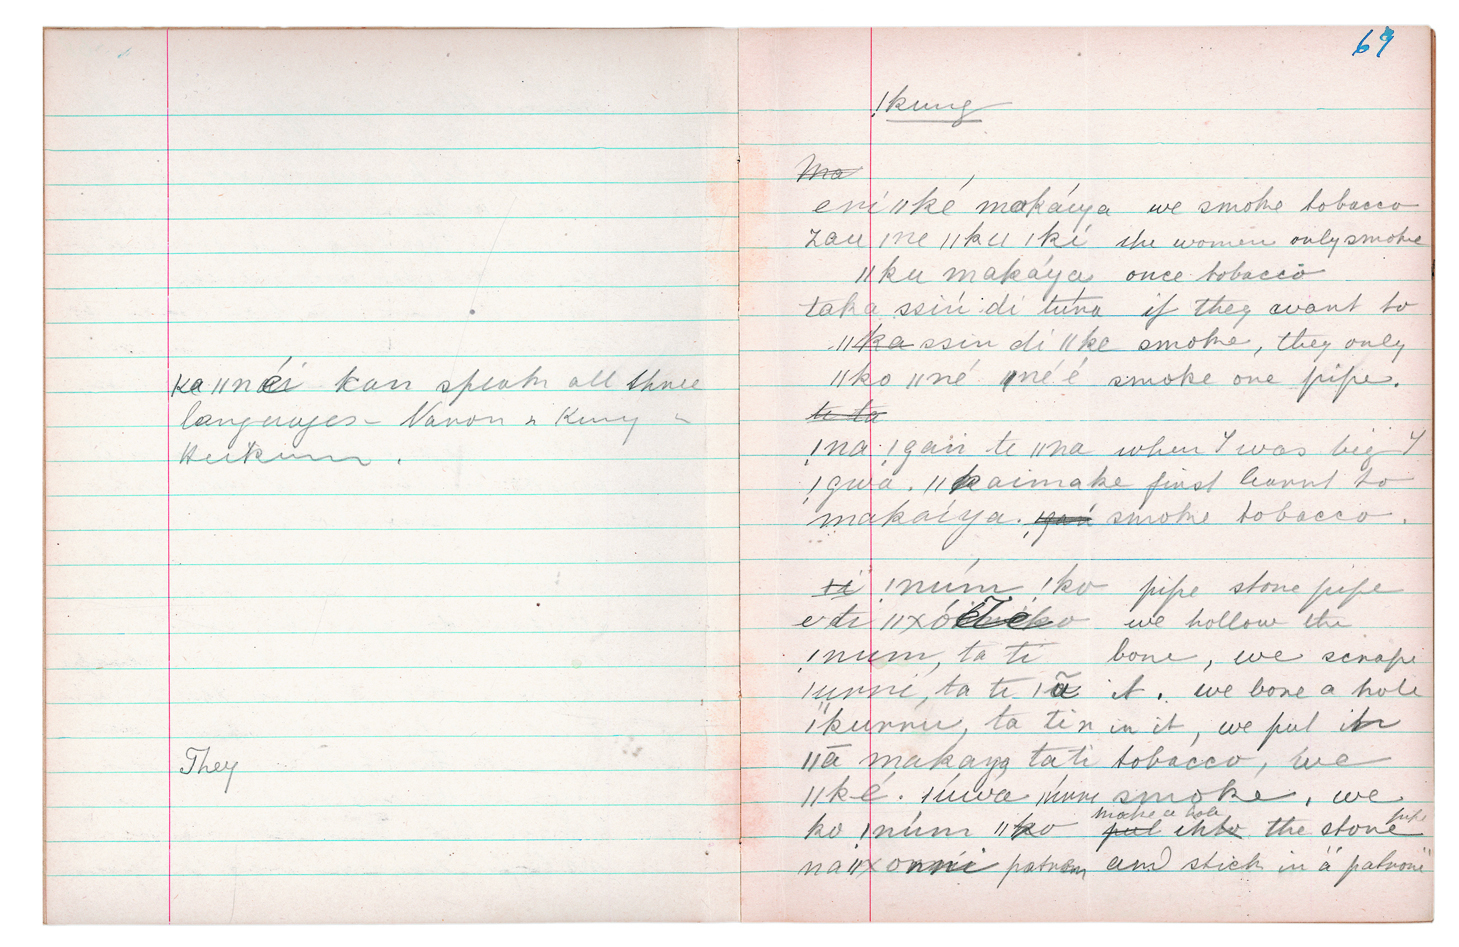 ka ǁnéi kan speak all three
languages – Naron & Kung &
Heikum.
They
69
!kung
Ma
eni ǁké makáiya we smoke tobacco
zau ǀne ǁku ǀki the women only smoke
ǁku makáya once tobacco
taka ssiń di túna if they want to
ǁka ssin di ǁke smoke, they only
ǁko ǁné ǀné é smoke one pipe.
te ta
!na !gań te ǁna when I was big I
!gwa. ǁkaimake first learnt to
makaíya. !gań smoke tobacco.
ti !núm !ko pipe stone pipe
e ti ǁxó ko we hollow the
!num, ta ti bone, we scrape
ǀurni, ta te ǀã it. we bore a hole
ǀkurru, ta ti n in it, we put in
ǁā makaya ta ti tobacco, we
ǁké. ǀúwa smoke, we
make a hole pipe
ko !núm ǁko put into the stone
na ǁxorni patrom and stick in "a patrone"